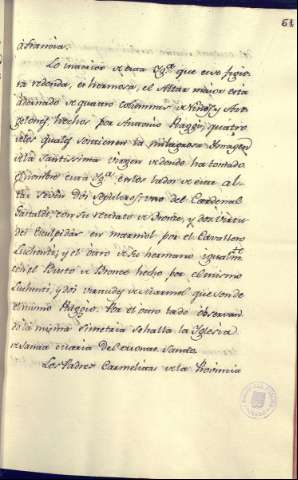 61
á Francia.
Lo interior de esta Ygª. que es de figu-
ra redonda, es hermosa, el Altar mayor está
adornado de quatro columnas de Niños, y An-
gelones, hechos por Antonio Raggi, quatro
de los quales sostienen la milagrosa Ymagen
de la Santissima Virgen de donde ha tomado
el nombre esta Ygª. en los lados de este al-
tar se ven dos sepulcros, uno del Cardenal
Gastaldi, con su retrato de Bronce, y dos Virtu-
des esculpidas en marmol por el Cavallero
Luchenti; y el otro de su hermano igualmte.
con el Busto de Bronce hecho por el mismo
Luchenti, y dos virtudes de Marmol que son de
el mismo Raggio. Por el otro lado observan-
do la misma simetria se halla la Iglesia
de Santa Maria del Monte Santo.
Los Padres Carmelitas de la Provincia